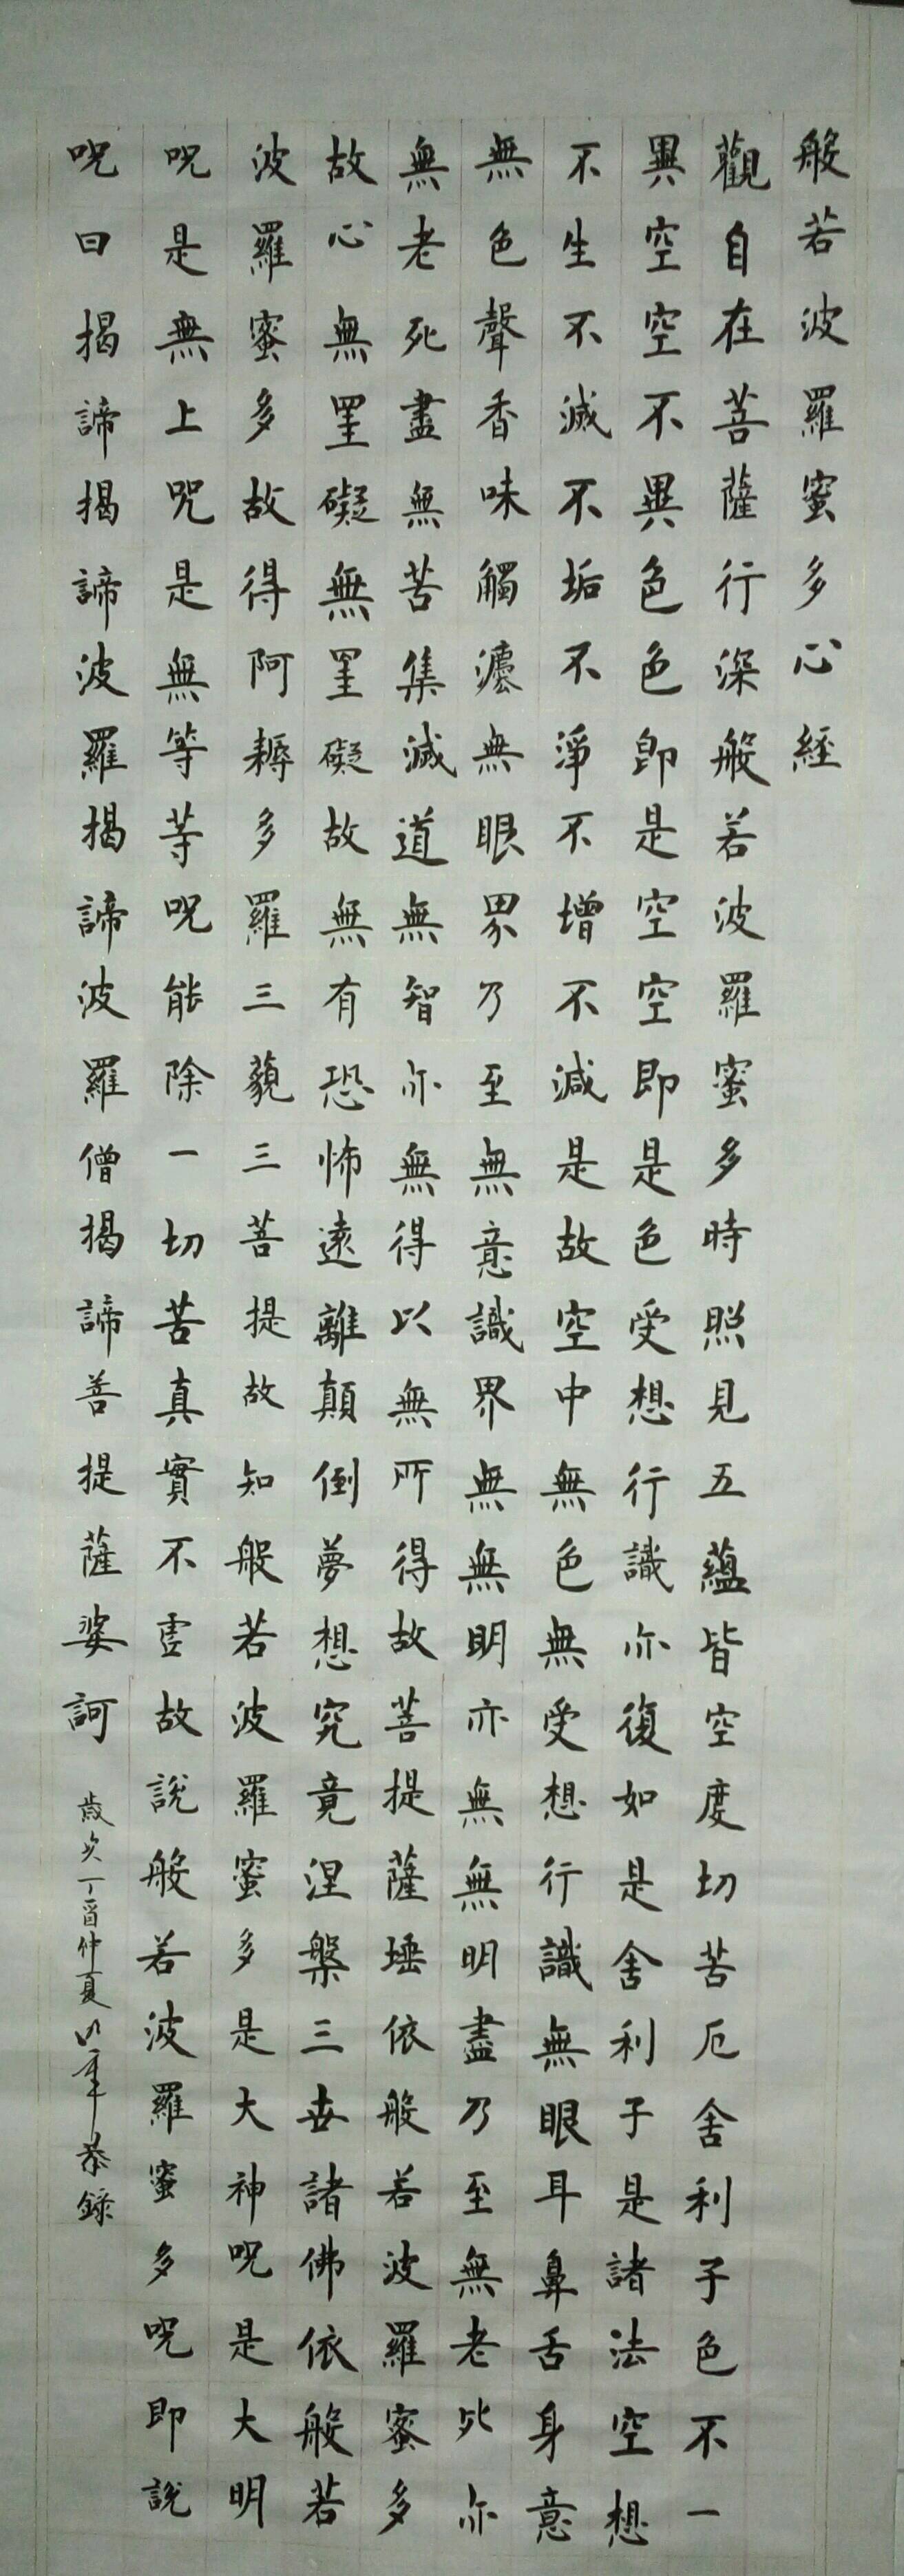 般若波羅蜜多心經
觀自在菩薩行深般若波羅蜜多時照見五蘊皆空度切苦厄舍利子色不一
異空空不異色色即是空空即是色受想行識亦復如是舍利子是諸法空想
不生不滅不垢不淨不增不減是故空中無色無受想行識無眼耳鼻舌身意
無色聲香味觸灋無眼界乃至無意識界無無明亦無無明盡乃至無老死亦
無老死盡無苦集滅道無智亦無得以無所得故菩提薩埵依般若波羅蜜多
故心無罣礙無罣礙故無有恐怖遠離顛倒夢想究竟涅槃三世諸佛依般若
波羅蜜多故得阿耨多羅三藐三菩提故知般若波羅蜜多是大神呪是大明
呪是無上呪是無等等呪能除一切苦真實不虛故說般若波羅蜜多呪即說
呪曰揭諦揭諦波羅揭諦波羅僧揭諦菩提薩婆訶
歲次丁酉仲夏 恭錄